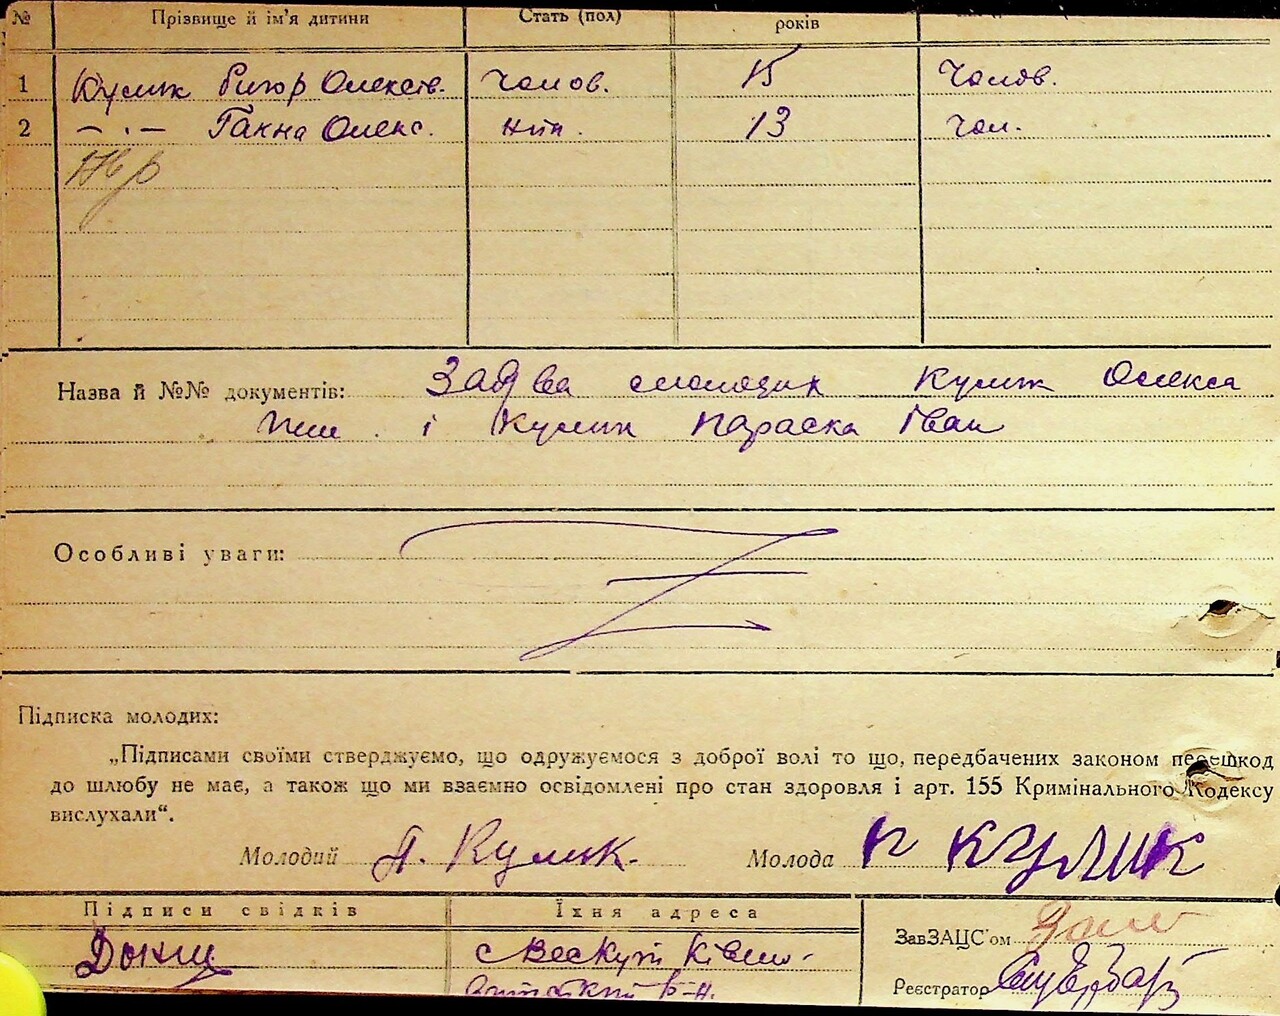 № Прізвище й ім'я дитини Стать (пол) років
1 Кулик Григор Олексів. Чолов. 15 Чолов.
2 — · — Ганна Олекс. жін. 13 Чол.
Назва й №№ документів: Заява молодих Кулик Олекса
і Кулик Параска Іван
Особливі уваги:
Підписка молодих:
„Підписами своїми стверджуємо, що одружуємося з доброї волі то що, передбачених законом перешкод
до шлюбу не має, а також що ми взаємно освідомлені про стан здоровля і арт. 155 Кримінального Кодексу
вислухали“.
Молодий Кулик. Молода П Кулик
Підписи свідків Їхня адреса
ЗавЗАЦС'ом
с
Реєстратор